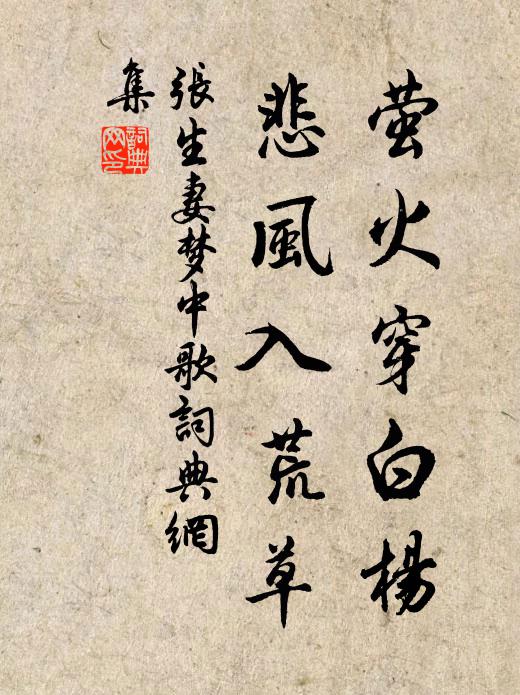 萤火穿白楊
悲風入荒草
張生妻梦中歌詞典網
集
詞典網印